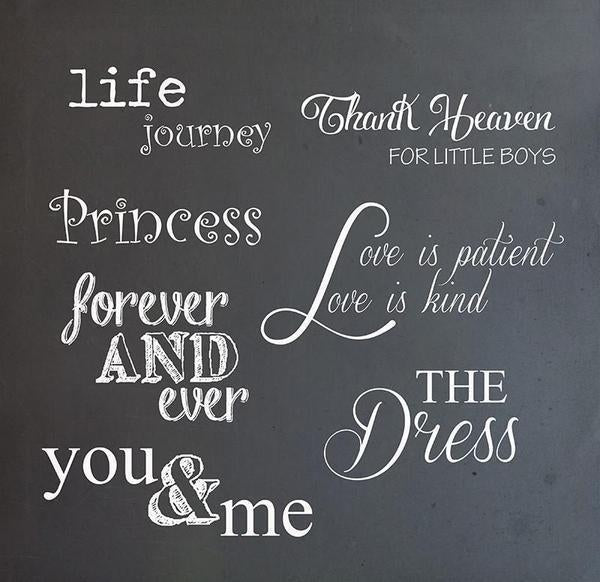 life
journey
Thank Heaven
FOR LITTLE BOYS
Princess
Love is patient
Love is kind
forever
AND
ever
THE
Dress
you
&
me